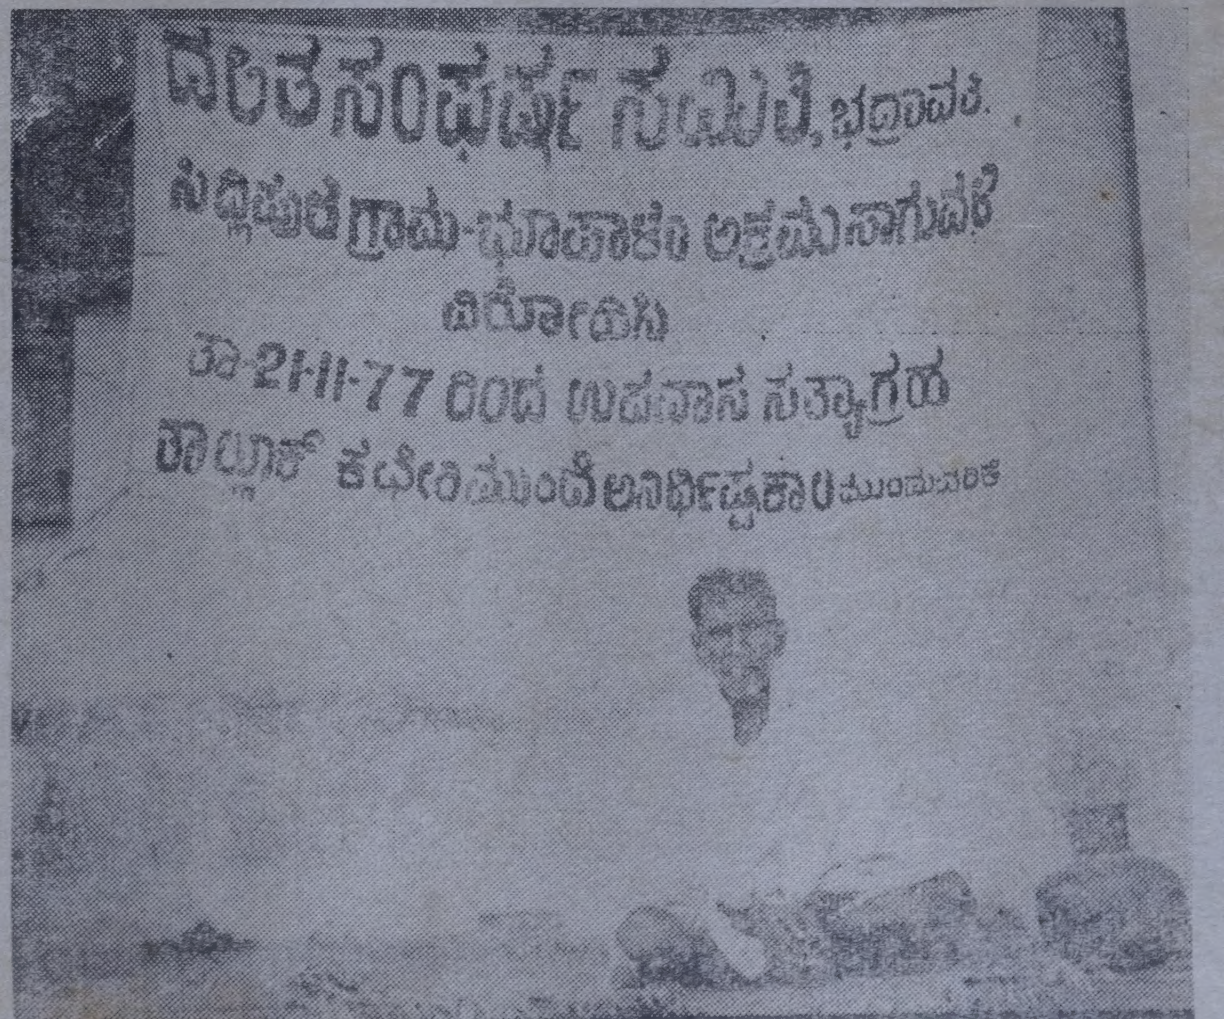 ದಲಿತ ಸಂಘರ್ಷ ಸಮಿತಿ, ಭದ್ರಾವತಿ.
ಸಿದ್ಲಿಪುರ ಗ್ರಾಮ-ಭೂಹಾಳಂ ಅಕ್ರಮ ಸಾಗುವಳಿ
ವಿರೋಧಿಸಿ
ತಾ-21-11-77 ರಿಂದ ಉಪವಾಸ ಸತ್ಯಾಗ್ರಹ
ತಾಲ್ಲೂಕ್ ಕಛೇರಿ ಮುಂದೆ ಅನಿರ್ಧಿಷ್ಟಕಾಲ ಮುಂದುವರಿಕೆ